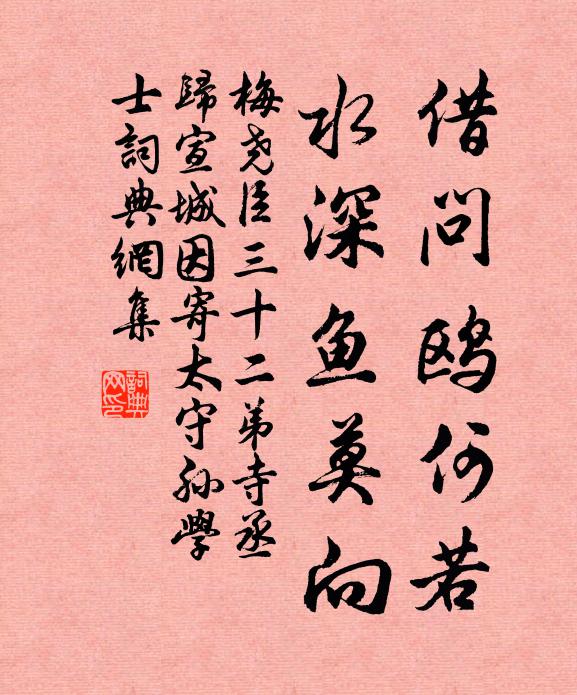 借问鸥何若
水深鱼莫向
梅尧臣三十二弟寺丞
歸宣城因寄太守孙學
士詞典網集
詞典
网印